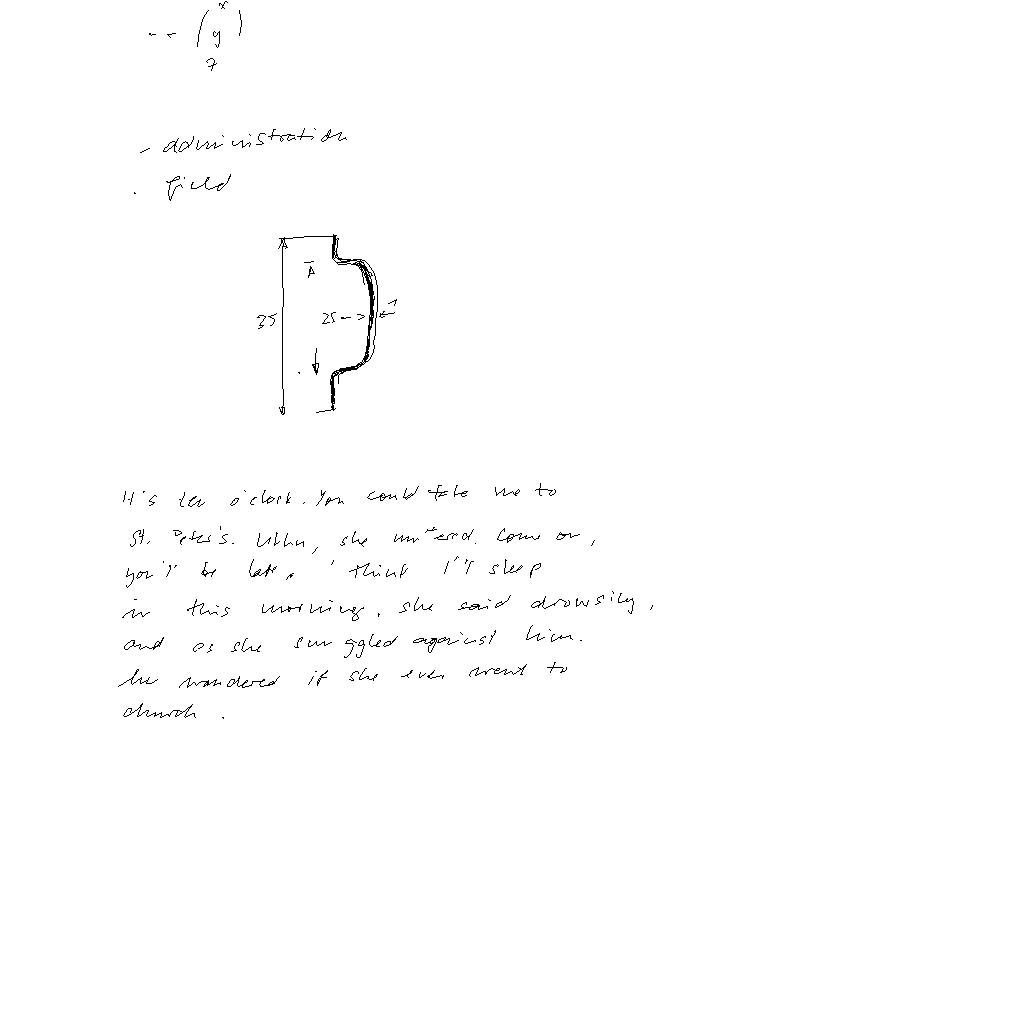 -- ( x
y )
7
- administration
. field
A
35 25 → ← 1
It's ten o'clock. You could take me to
St. Peter's. Uhhu, she muttered. Come on,
you'll be late. I think I'll sleep
in this morning, she said drowsily,
and as she snuggled against him.
he wondered if she ever went to
church.